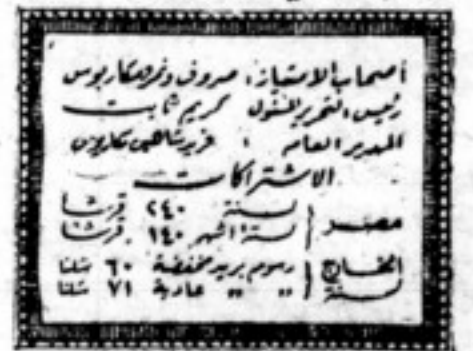 أصحاب الامتياز: صروف ونمر ومكاريوس
رئيس التحرير المسئول كريم ثابت
المدير العام : فريد شاهين مكاريوس
الاشتراكات
مصر } لسنة ٢٤٠ قرشا
لستة اشهر ١٤٠ قرشا
الخارج لسنة } رسوم بريد مخفضة ٦٠ شلنا
" " عادية ٧١ شلنا